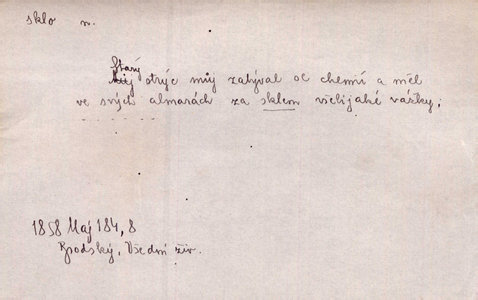 sklo n.
Starý
strýc můj zabýval se chemií a měl
ve svých almarách za sklem všelijaké vážky;
1858 Máj 184, 8
Brodský, Všední živ.